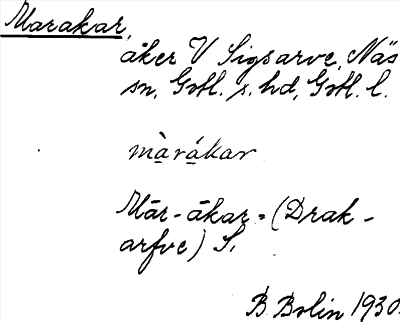 Marakar,
åker V Sigsarve, Näs
sn, Gotl. s. hd, Gotl. l.
màrákar
Mār-ākar = (Drak-
arfve) S.
B. Bolin 1930.